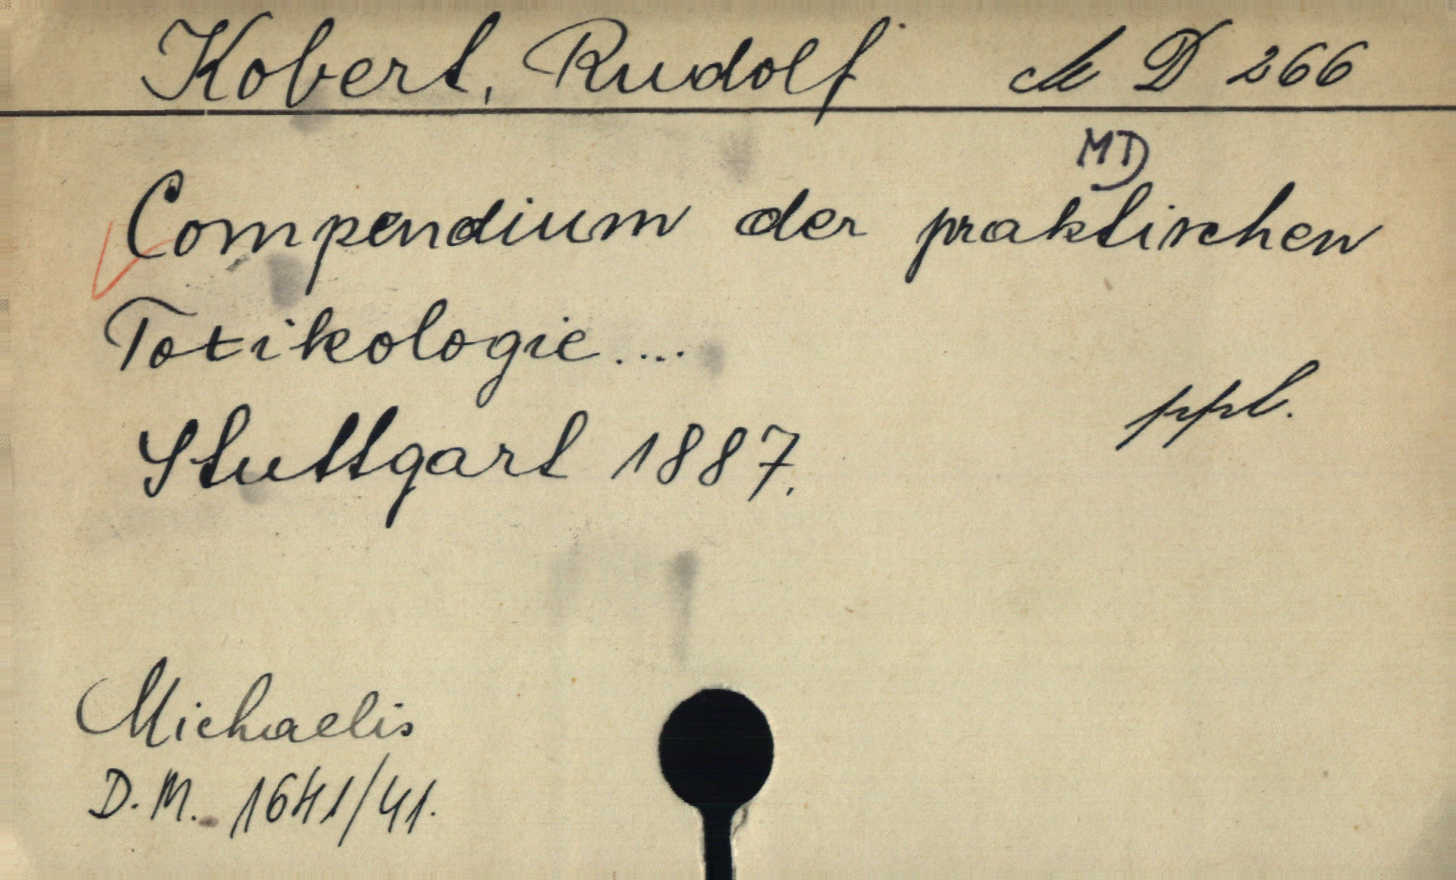 Kobert, Rudolf M D 266
MD
Compendium der praktischen
Toxikologie....
ppl.
Stuttgart 1887.
Michaelis
D.M. 1641/41.